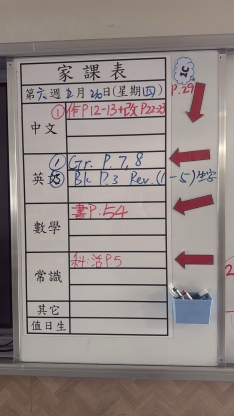 家課表
1C
第六週2月26日(星期四)
P.29
中文
①作P12-13+改P22-23
英
① Gr. P.7,8
⑤ Bk P.3 Rev.(1-5)生字
數學
書P.54
常識
科:活P5
其它
值日生